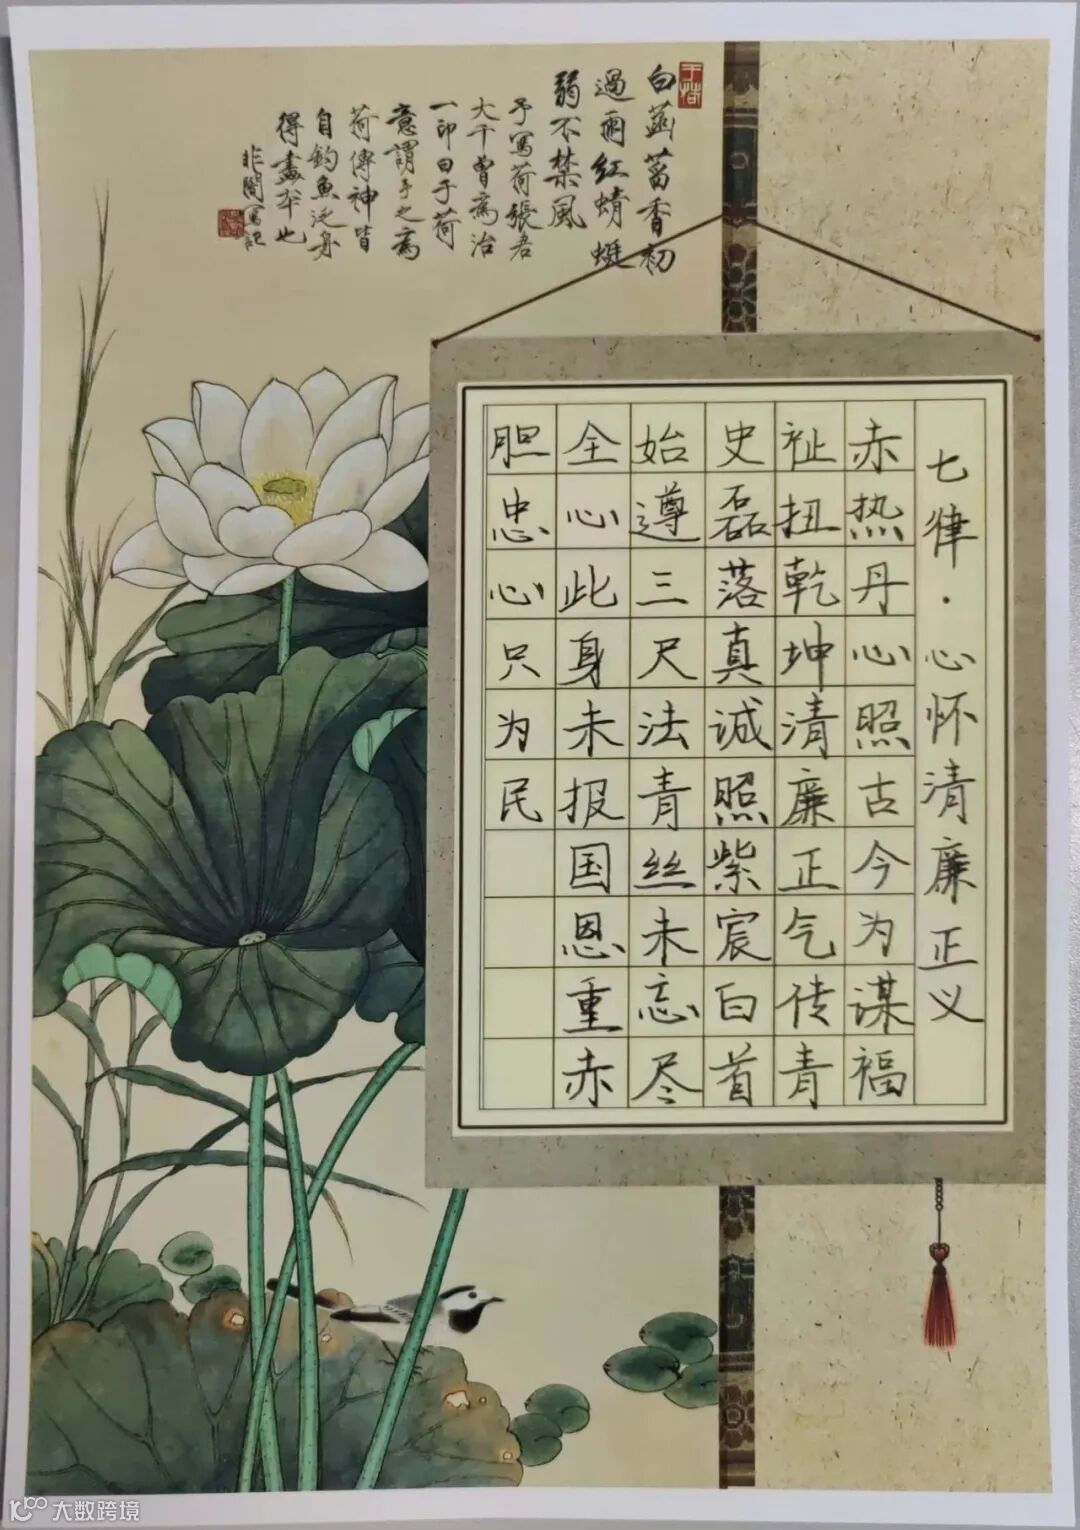 七律·心怀清廉正义
赤热丹心照古今为谋福
祉扭乾坤清廉正气传青
史磊落真诚照紫宸白首
始遵三尺法青丝未忘尽
全心此身未报国恩重赤
胆忠心只为民
于荷
白菡萏香初
過雨红蜻蜓
弱不禁風
予寫荷張君
大千曾為治
一印曰于荷
意謂予之為
荷傳神皆
自釣魚泛舟
得書本也
非闇寫記
大数跨境